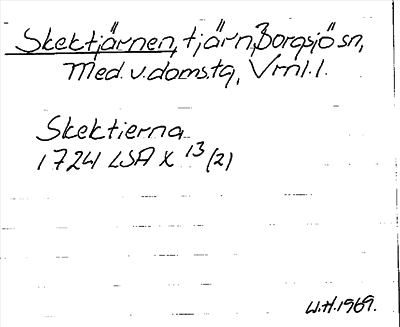 Skektjärnen, tjärn, Borgsjö sn,
Med. v. doms.tg, Vrnl. l.
Skektierna
1724 LSA X 13/(2)
W.H. 1969.